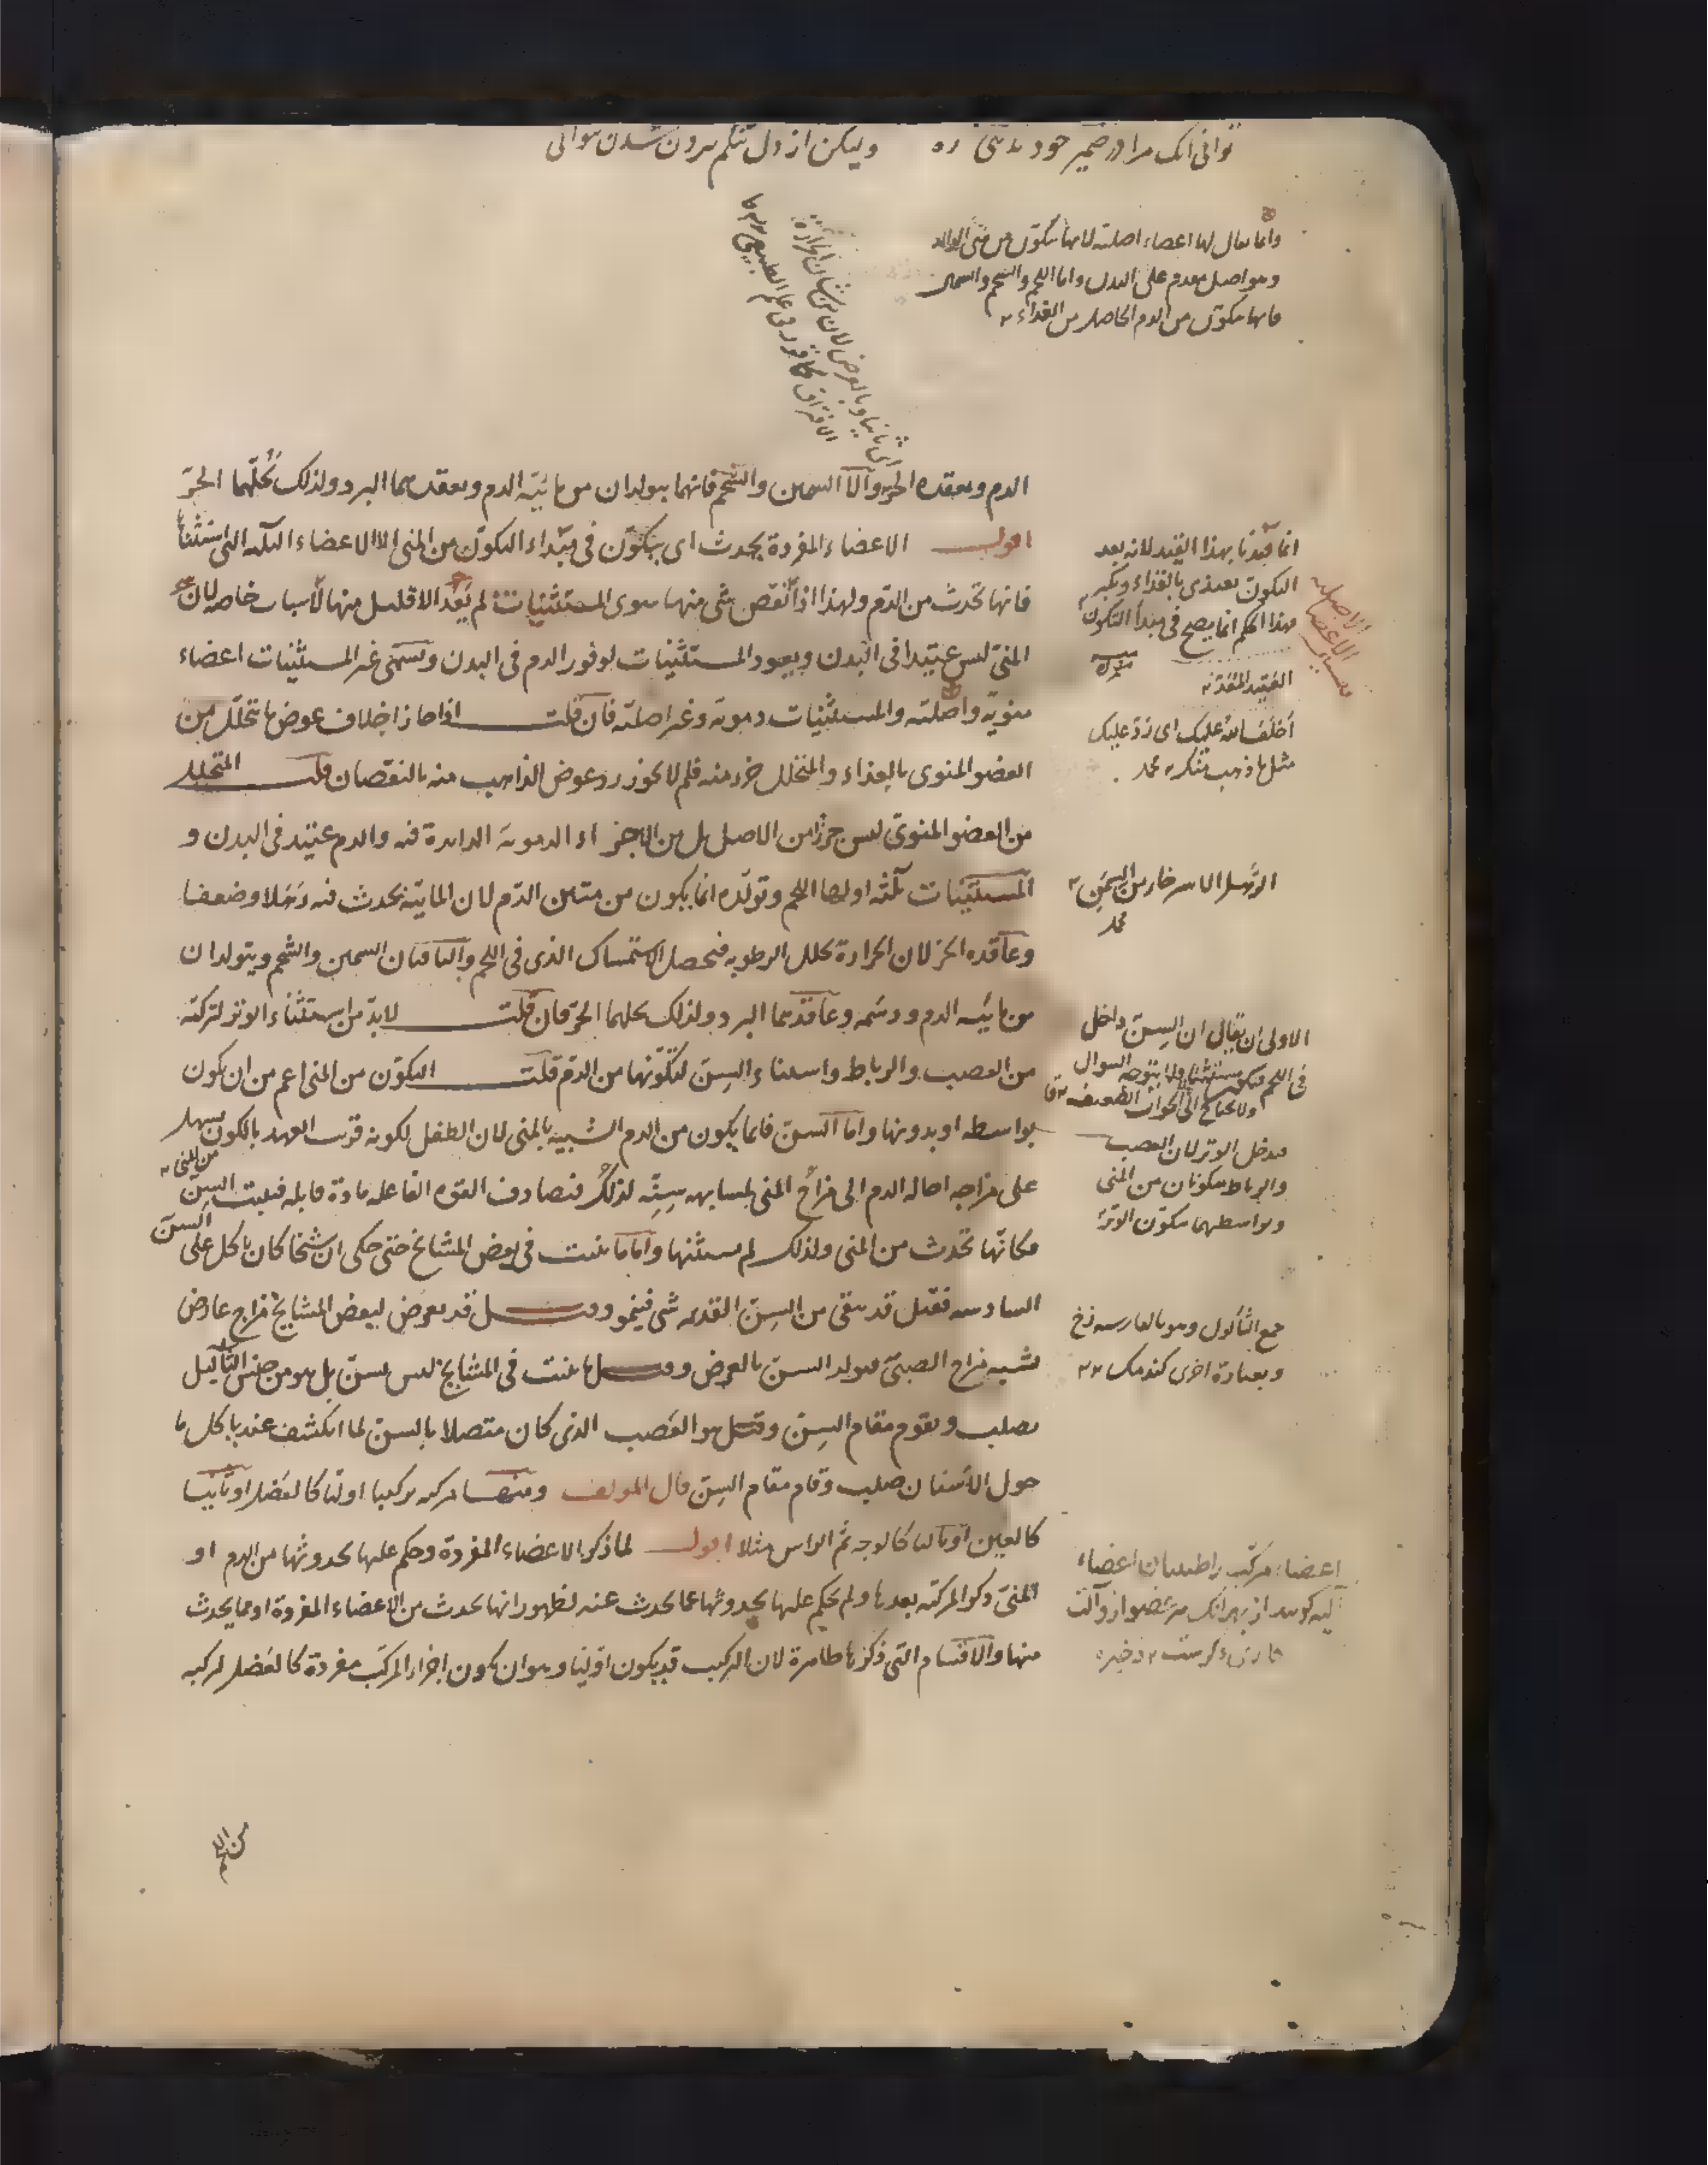 توانی انک مرا در ضمیر خود
ولیکن از دل تنگم برون شدن نتوانی
وانما یقال لها اعضاء اصلیة لانها تتکون من منی الوالد
وهو اصل مقدم علی البدن واما اللحم والشحم والسمین
فانها تتکون من الدم الحاصل من الغذاء
الدم ویعقده الحر والا السمین والشحم فانهما یتولدان من مائیة الدم ویعقدهما البرد ولذلک تحلهما الحر
اقول الاعضاء المفردة یحدث ای یتکون فی مبتداء التکون من المنی الا الاعضاء الثلثة التی استثناها
فانها تحدث من الدم ولهذا اذا نقص شئ منها سوی المستثنیات لم یعد الا قلیل منها لاسباب خاصة لان
المنی لیس عتیدا فی البدن ویعود المستثنیات لوفور الدم فی البدن وتسمی غیر المستثنیات اعضاء
منویة واصلیة والمستثنیات دمویة وغیر اصلیة فان قلت اذا جاز اخلاف عوض ما تحلل من
العضو المنوی بالغذاء والمتحلل جزء منه فلم لا یجوز ردد عوض الذاهب منه بالنقصان قلت المتحلل
من العضو المنوی لیس جزءا من الاصل بل من الاجزاء الدمویة الزایدة فیه والدم عتید فی البدن و
المستثنیات ثلثة اولها اللحم وتولده انما یکون من متین الدم لان المائیة یحدث فیه رهلا وضعفا
وعاقده الحر لان الحرارة تحلل الرطوبة فیحصل الاستمساک الذی فی اللحم والباقیان السمین والشحم ویتولدان
من مائیة الدم ودسمه وعاقدهما البرد ولذلک یحلهما الحر فان قلت لابد من استثناء الوتر لترکبه
من العصب والرباط واستثناء السن لتکونها من الدم قلت التکون من المنی اعم من ان یکون
بواسطة او بدونها واما السن فانما یکون من الدم الشبیه بالمنی لان الطفل لکونه قریب العهد بالکون یسهل
من المنی
علی مزاجه احالة الدم الی مزاج المنی لمشابهة سنیه لذلک فتصادف القوة الفاعلة مادة قابلة فینبت السن
فکانها تحدث من المنی ولذلک لم یستثنها واما ما ینبت فی بعض المشایخ حتی حکی ان شیخا کان یاکل علی السن
السادسة فقیل قد یبقی من السن القدیمة شئ فینمو وقیل قد یعرض لبعض المشایخ مزاج عارض
یشبه مزاج الصبی فیولد السن بالعرض وقیل ما ینبت فی المشایخ لیس بسن بل هو من جنس الثآلیل
یصلب ویقوم مقام السن وقیل هو العصب الذی کان متصلا بالسن لما انکشف عند یاکل ما
حول الاسنان صلب وقام مقام السن قال المولف ومنها مرکبة ترکیبا اولیا کالعضل او ثانیا
کالعین او ثالثا کالوجه ثم الراس مثلا اقول لما ذکر الاعضاء المفردة وحکم علیها بحدوثها من الدم او
المنی ذکر المرکبة بعدها ولم یحکم علیها بحدوثها عما یحدث عنه لظهور انها تحدث من الاعضاء المفردة او مما یحدث
منها والاقسام التی ذکرها ظاهرة لان الترکیب قد یکون اولیا وهو ان یکون اجزاء المرکب مفردة کالعضل لترکبه
انما قیدنا بهذا القید لانه بعد
التکون یغتذی بالغذاء ویکبر
فهذا الحکم انما یصح فی مبدأ التکون
اخلف الله علیک ای رد علیک
مثل ما ذهب منک
الرهل الاسترخاء من السمن
الاولی ان یقال ان السن داخل
فی اللحم فیکون مستثنی ولا یتوجه السوال
ولا یحتاج الی الجواب الضعیف
فیدخل الوتر لان العصب
والرباط یتکونان من المنی
وبواسطهما یتکون الوتر
جمع الثألول وهو بالفارسیة زخ
وبعبارة اخری کندمک
اعضاء مرکب را طبیبان اعضاء
آلیه کویند از بهر انک هر عضو از و آلت